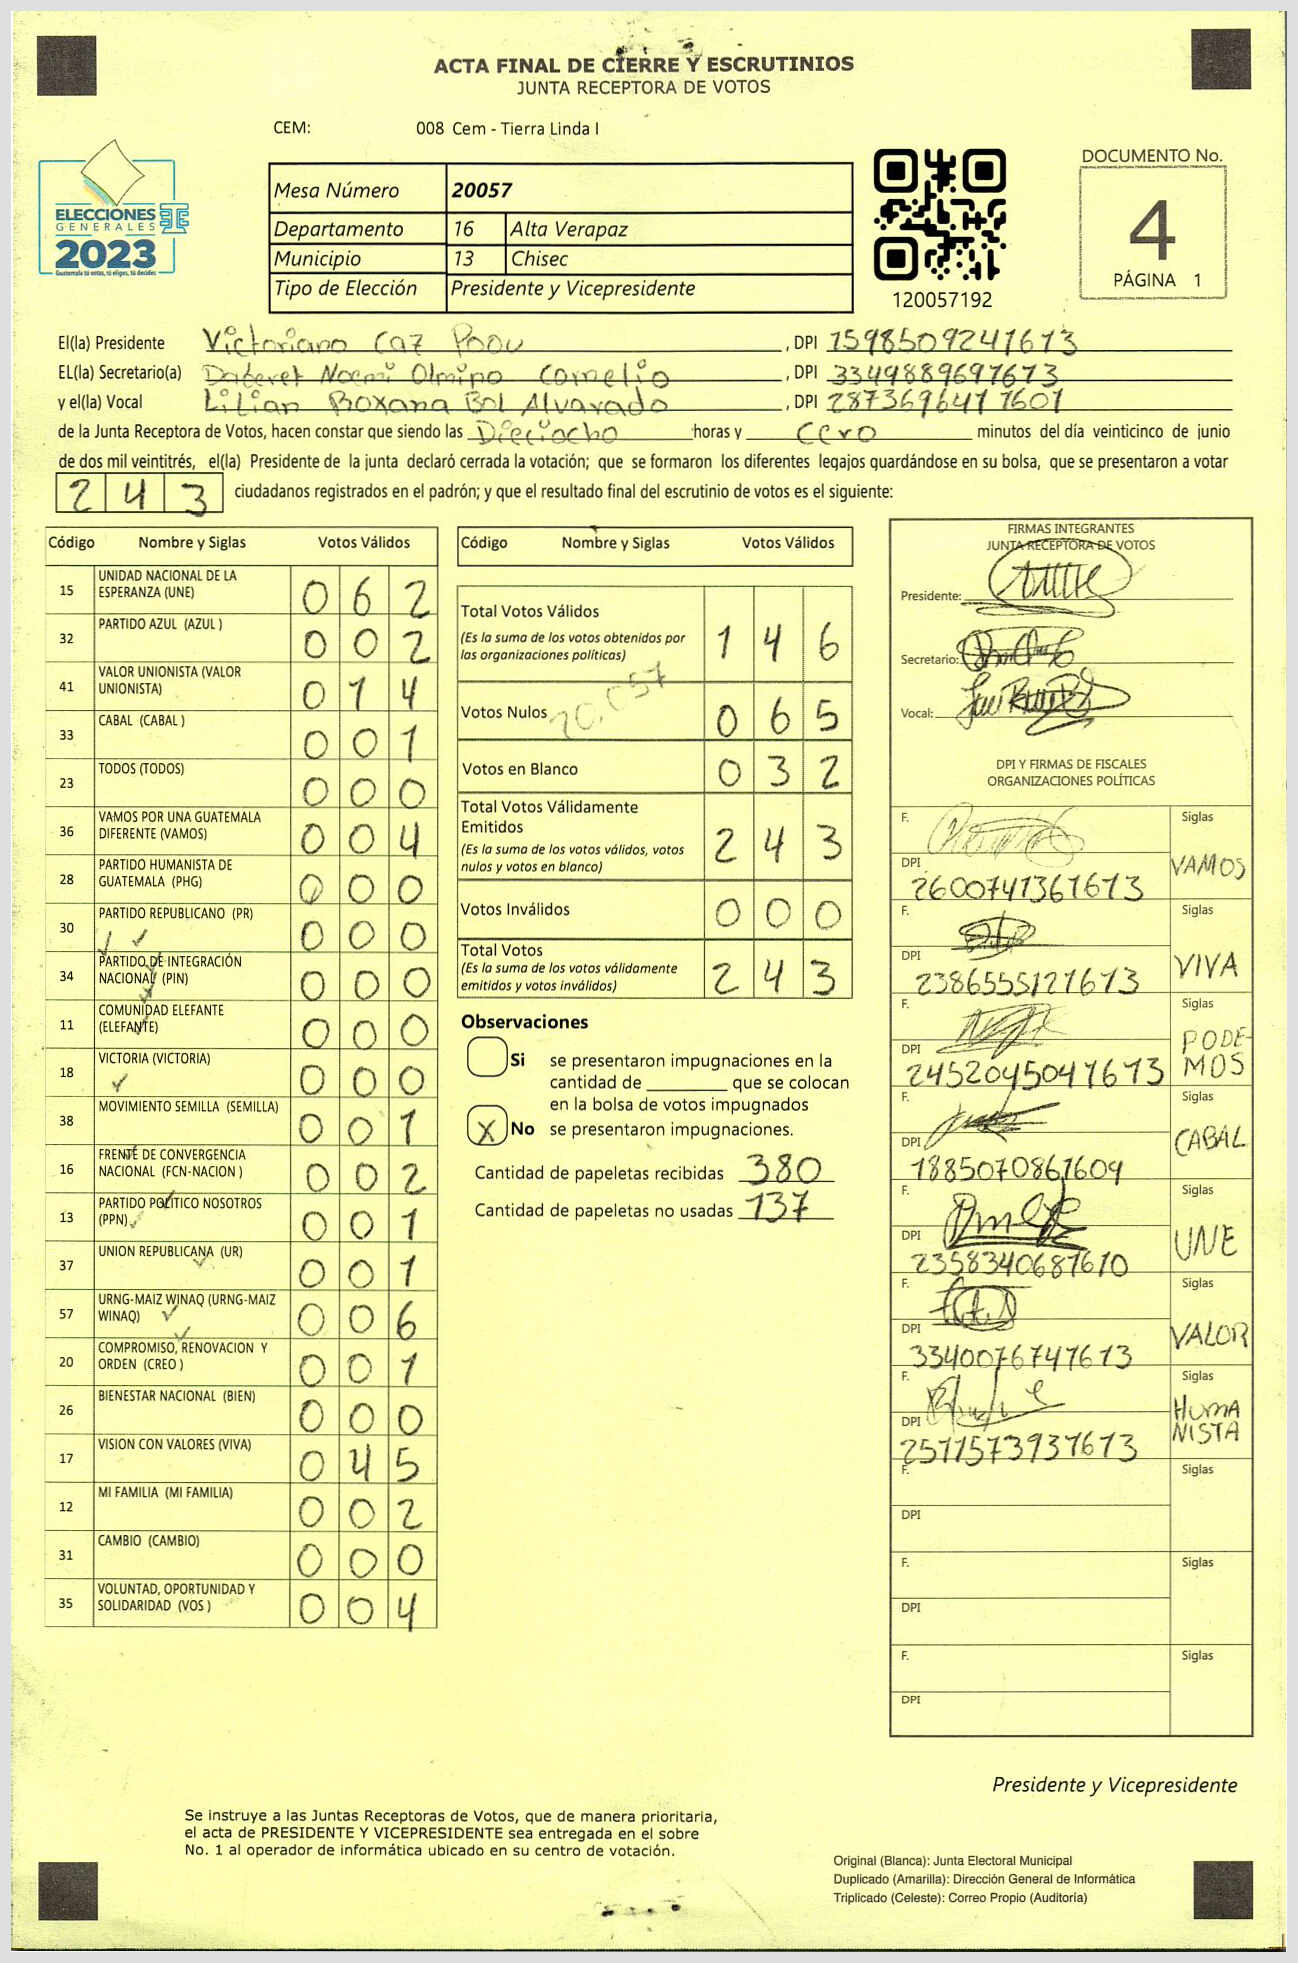 ACTA FINAL DE CIERRE Y ESCRUTINIOS
JUNTA RECEPTORA DE VOTOS
CEM: 008 Cem - Tierra Linda I
ELECCIONES
GENERALES
2023
Guatemala tú votas, tú eliges, tú decides
Mesa Número 20057
Departamento 16 Alta Verapaz
Municipio 13 Chisec
Tipo de Elección Presidente y Vicepresidente
120057192
DOCUMENTO No.
4
PÁGINA 1
El(la) Presidente Victoriano Caz Poou, DPI 1598509241613
EL(la) Secretario(a) Noemi Olmino Cornelio, DPI 3349889691613
y el(la) Vocal Lilian Roxana Bol Alvarado, DPI 2873696411601
de la Junta Receptora de Votos, hacen constar que siendo las Dieciocho horas y cero minutos del día veinticinco de junio
de dos mil veintitrés, el(la) Presidente de la junta declaró cerrada la votación; que se formaron los diferentes legajos guardándose en su bolsa, que se presentaron a votar
243 ciudadanos registrados en el padrón; y que el resultado final del escrutinio de votos es el siguiente:
Código Nombre y Siglas Votos Válidos
15 UNIDAD NACIONAL DE LA ESPERANZA (UNE) 062
32 PARTIDO AZUL (AZUL ) 002
41 VALOR UNIONISTA (VALOR UNIONISTA) 014
33 CABAL (CABAL ) 001
23 TODOS (TODOS) 000
36 VAMOS POR UNA GUATEMALA DIFERENTE (VAMOS) 004
28 PARTIDO HUMANISTA DE GUATEMALA (PHG) 000
30 PARTIDO REPUBLICANO (PR) 000
34 PARTIDO DE INTEGRACIÓN NACIONAL (PIN) 000
11 COMUNIDAD ELEFANTE (ELEFANTE) 000
18 VICTORIA (VICTORIA) 000
38 MOVIMIENTO SEMILLA (SEMILLA) 001
16 FRENTE DE CONVERGENCIA NACIONAL (FCN-NACION ) 002
13 PARTIDO POLÍTICO NOSOTROS (PPN) 001
37 UNION REPUBLICANA (UR) 001
57 URNG-MAIZ WINAQ (URNG-MAIZ WINAQ) 006
20 COMPROMISO, RENOVACION Y ORDEN (CREO ) 001
26 BIENESTAR NACIONAL (BIEN) 000
17 VISION CON VALORES (VIVA) 045
12 MI FAMILIA (MI FAMILIA) 002
31 CAMBIO (CAMBIO) 000
35 VOLUNTAD, OPORTUNIDAD Y SOLIDARIDAD (VOS ) 004
Código Nombre y Siglas Votos Válidos
Total Votos Válidos 146
(Es la suma de los votos obtenidos por
las organizaciones políticas)
20.057
Votos Nulos 065
Votos en Blanco 032
Total Votos Válidamente
Emitidos 243
(Es la suma de los votos válidos, votos
nulos y votos en blanco)
Votos Inválidos 000
Total Votos 243
(Es la suma de los votos válidamente
emitidos y votos inválidos)
Observaciones
Si se presentaron impugnaciones en la
cantidad de ________ que se colocan
en la bolsa de votos impugnados
X No se presentaron impugnaciones.
Cantidad de papeletas recibidas 380
Cantidad de papeletas no usadas 137
FIRMAS INTEGRANTES
JUNTA RECEPTORA DE VOTOS
Presidente:
Secretario:
Vocal:
DPI Y FIRMAS DE FISCALES
ORGANIZACIONES POLÍTICAS
F. Siglas
DPI 2600741361613 VAMOS
F. Siglas
DPI 2386555121613 VIVA
F. Siglas
DPI 2452045041613 PODE-
MOS
F. Siglas
DPI 1885070861609 CABAL
F. Siglas
DPI 2358340681610 UNE
F. Siglas
DPI 3340076741613 VALOR
F. Siglas
DPI 2571573931613 HUMA
NISTA
F. Siglas
DPI
F. Siglas
DPI
F. Siglas
DPI
Presidente y Vicepresidente
Se instruye a las Juntas Receptoras de Votos, que de manera prioritaria,
el acta de PRESIDENTE Y VICEPRESIDENTE sea entregada en el sobre
No. 1 al operador de informática ubicado en su centro de votación.
Original (Blanca): Junta Electoral Municipal
Duplicado (Amarilla): Dirección General de Informática
Triplicado (Celeste): Correo Propio (Auditoría)